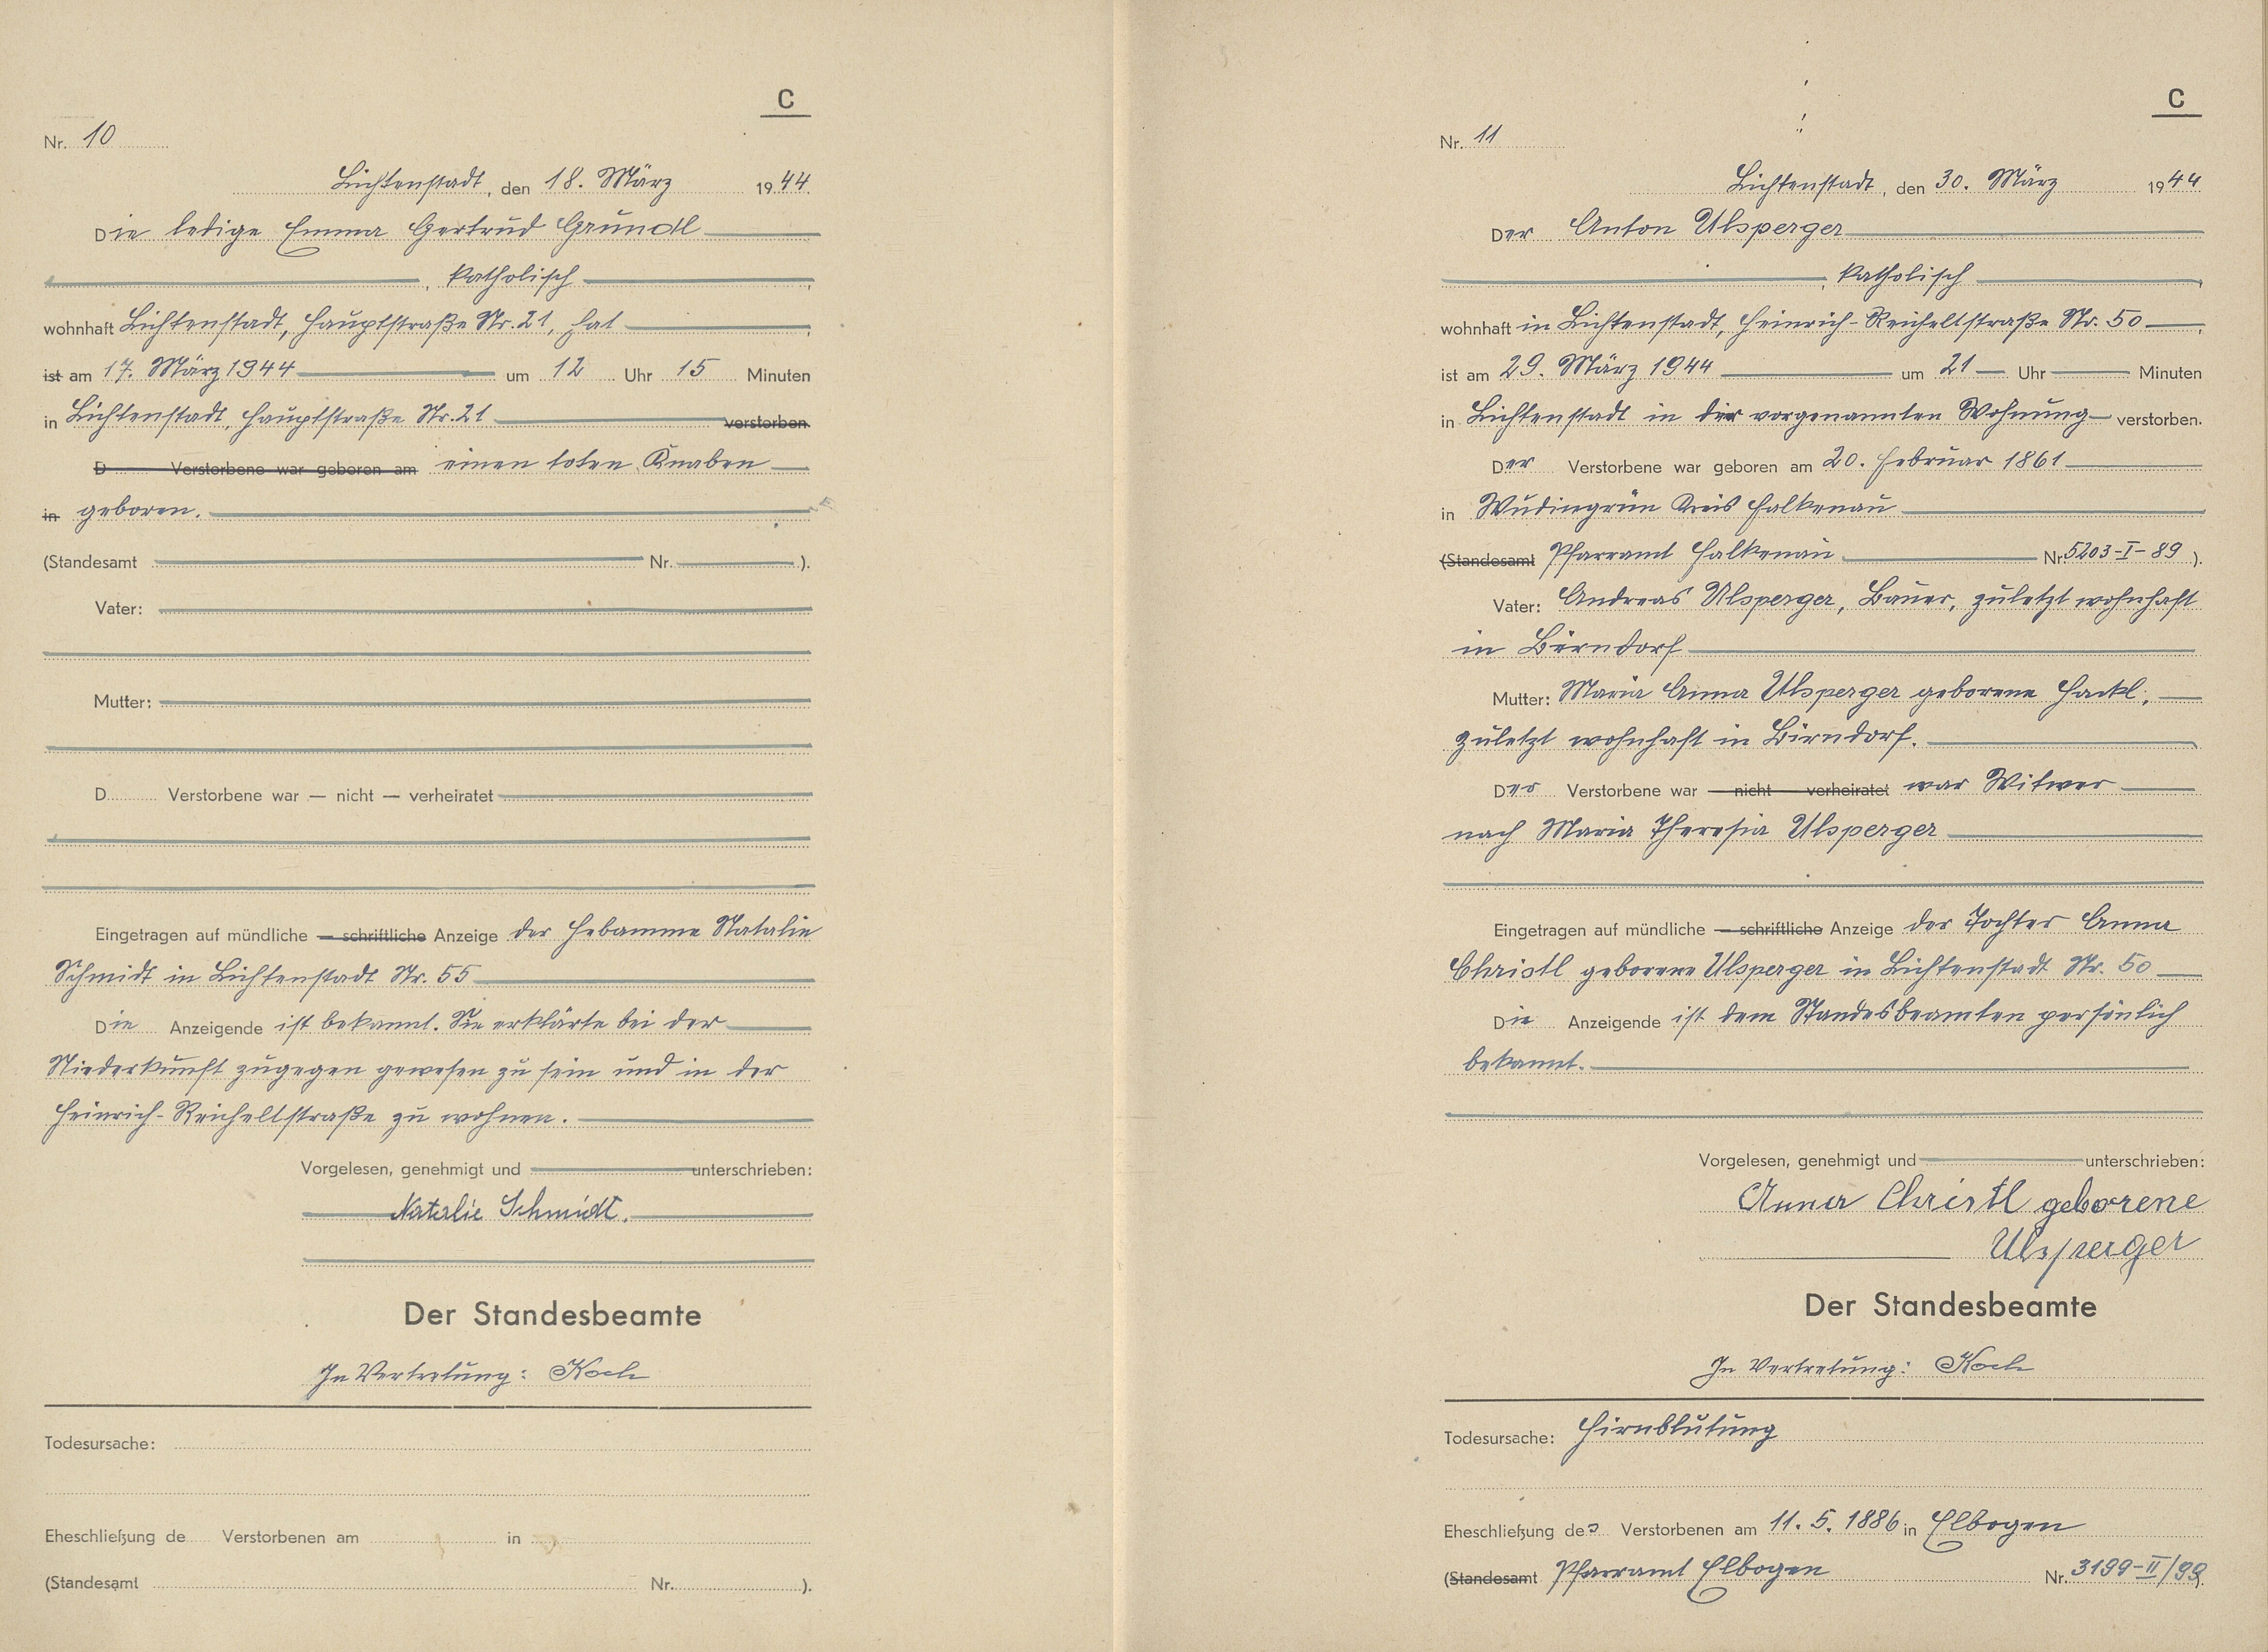 C
Nr. 10
Lichtenstadt, den 18. März 1944
Die ledige Emma Gertrud Gründl
, katholisch
wohnhaft Lichtenstadt, Hauptstraße Nr. 21, hat
ist am 17. März 1944 um 12 Uhr 15 Minuten
in Lichtenstadt, Hauptstraße Nr. 21 verstorben
D Verstorbene war geboren am einen toten Knaben
in geboren.
(Standesamt Nr. ).
Vater:
Mutter:
D Verstorbene war — nicht — verheiratet
Eingetragen auf mündliche — schriftliche Anzeige der Hebamme Natalie
Schmidt in Lichtenstadt Nr. 55
Die Anzeigende ist bekannt. Sie erklärte bei der
Niederkunft zugegen gewesen zu sein und in der
Heinrich-Reicheltstraße zu wohnen.
Vorgelesen, genehmigt und unterschrieben:
Natalie Schmidt.
Der Standesbeamte
In Vertretung: Koch
Todesursache:
Eheschließung de Verstorbenen am in
(Standesamt Nr. ).
C
Nr. 11
Lichtenstadt, den 30. März 1944
Der Anton Ulsperger
, katholisch
wohnhaft in Lichtenstadt, Heinrich-Reicheltstraße Nr. 50
ist am 29. März 1944 um 21 Uhr Minuten
in Lichtenstadt in der vorgenannten Wohnung verstorben.
Der Verstorbene war geboren am 20. Februar 1861
in Wudingrün Kreis Falkenau
(Standesamt Pfarramt Falkenau Nr. 5203-I-89 ).
Vater: Andreas Ulsperger, Bauer, zuletzt wohnhaft
in Birndorf
Mutter: Maria Anna Ulsperger geborene Hackl,
zuletzt wohnhaft in Birndorf.
Der Verstorbene war — nicht — verheiratet war Witwer
nach Maria Theresia Ulsperger
Eingetragen auf mündliche — schriftliche Anzeige der Tochter Anna
Christl geborene Ulsperger in Lichtenstadt Nr. 50
Die Anzeigende ist dem Standesbeamten persönlich
bekannt.
Vorgelesen, genehmigt und unterschrieben:
Anna Christl geborene
Ulsperger
Der Standesbeamte
In Vertretung: Koch
Todesursache: Hirnblutung
Eheschließung des Verstorbenen am 11. 5. 1886 in Elbogen
(Standesamt Pfarramt Elbogen Nr. 3199-II/99).